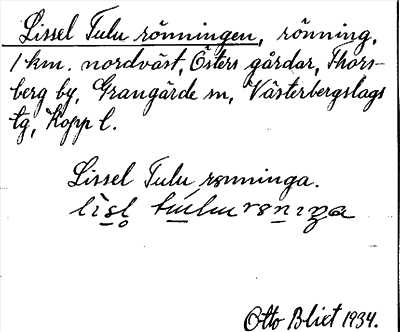 Lissel Tulu rönningen, rönning,
1 km. nordväst, Östers gårdar, Thors-
berg by, Grangärde sn, Västerbergslags
tg, Kopp l.
Lissel Tulu rønninga.
Otto Blixt 1934.